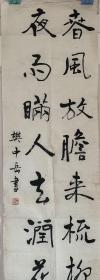 春風放膽来梳柳
夜雨瞞人去潤花
樊中岳書